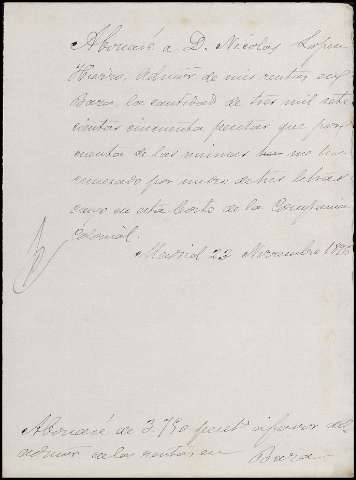 Abonaré á D. Nicolas Lopez
Hierro, Admor de mis rentas en
Baza, la cantidad de tres mil sete
cientas cincuenta pesetas que por
cuenta de las mismas me ha
remesado por medio de tres letras
cargo en esta Corte de la Compañia
Colonial.
Madrid 23 Noviembre
Abonaré de 3.750 pesets á favor del
admor de las rentas en Baza